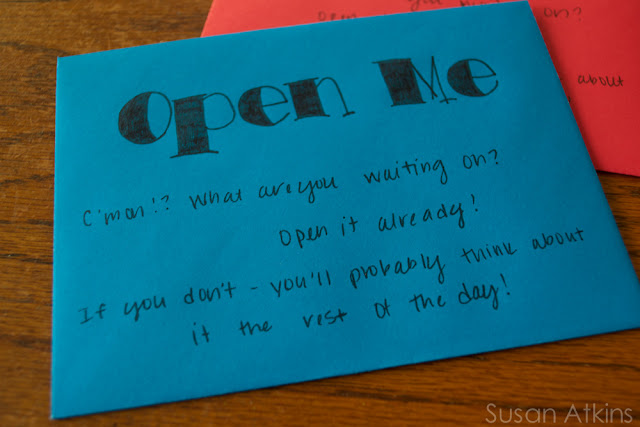 Open Me
C'mon!? What are you waiting on?
Open it already!
If you don't - you'll probably think about
it the rest of the day!
open
on?
about
Susan Atkins